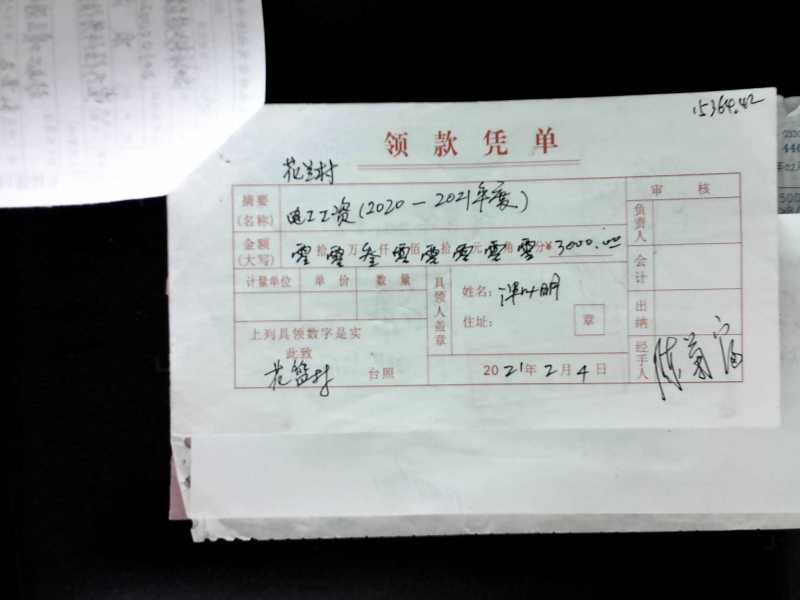 15364.42
领款凭单
花兰村
摘要(名称) 电工工资(2020-2021年度) 审核
金额(大写) 零拾零万叁仟零佰零拾零元零角零分¥3000.00 负责人
计量单位 单价 数量 具领人盖章 姓名: 会计
住址: 章 出纳
上列具领数字是实
此致
花篮村 台照 2021年2月4日 经手人